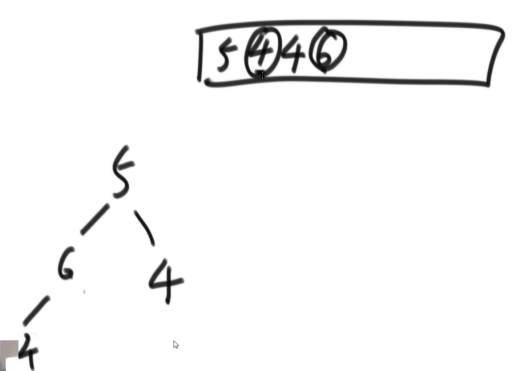 5 4 4 6
5
6 4
4